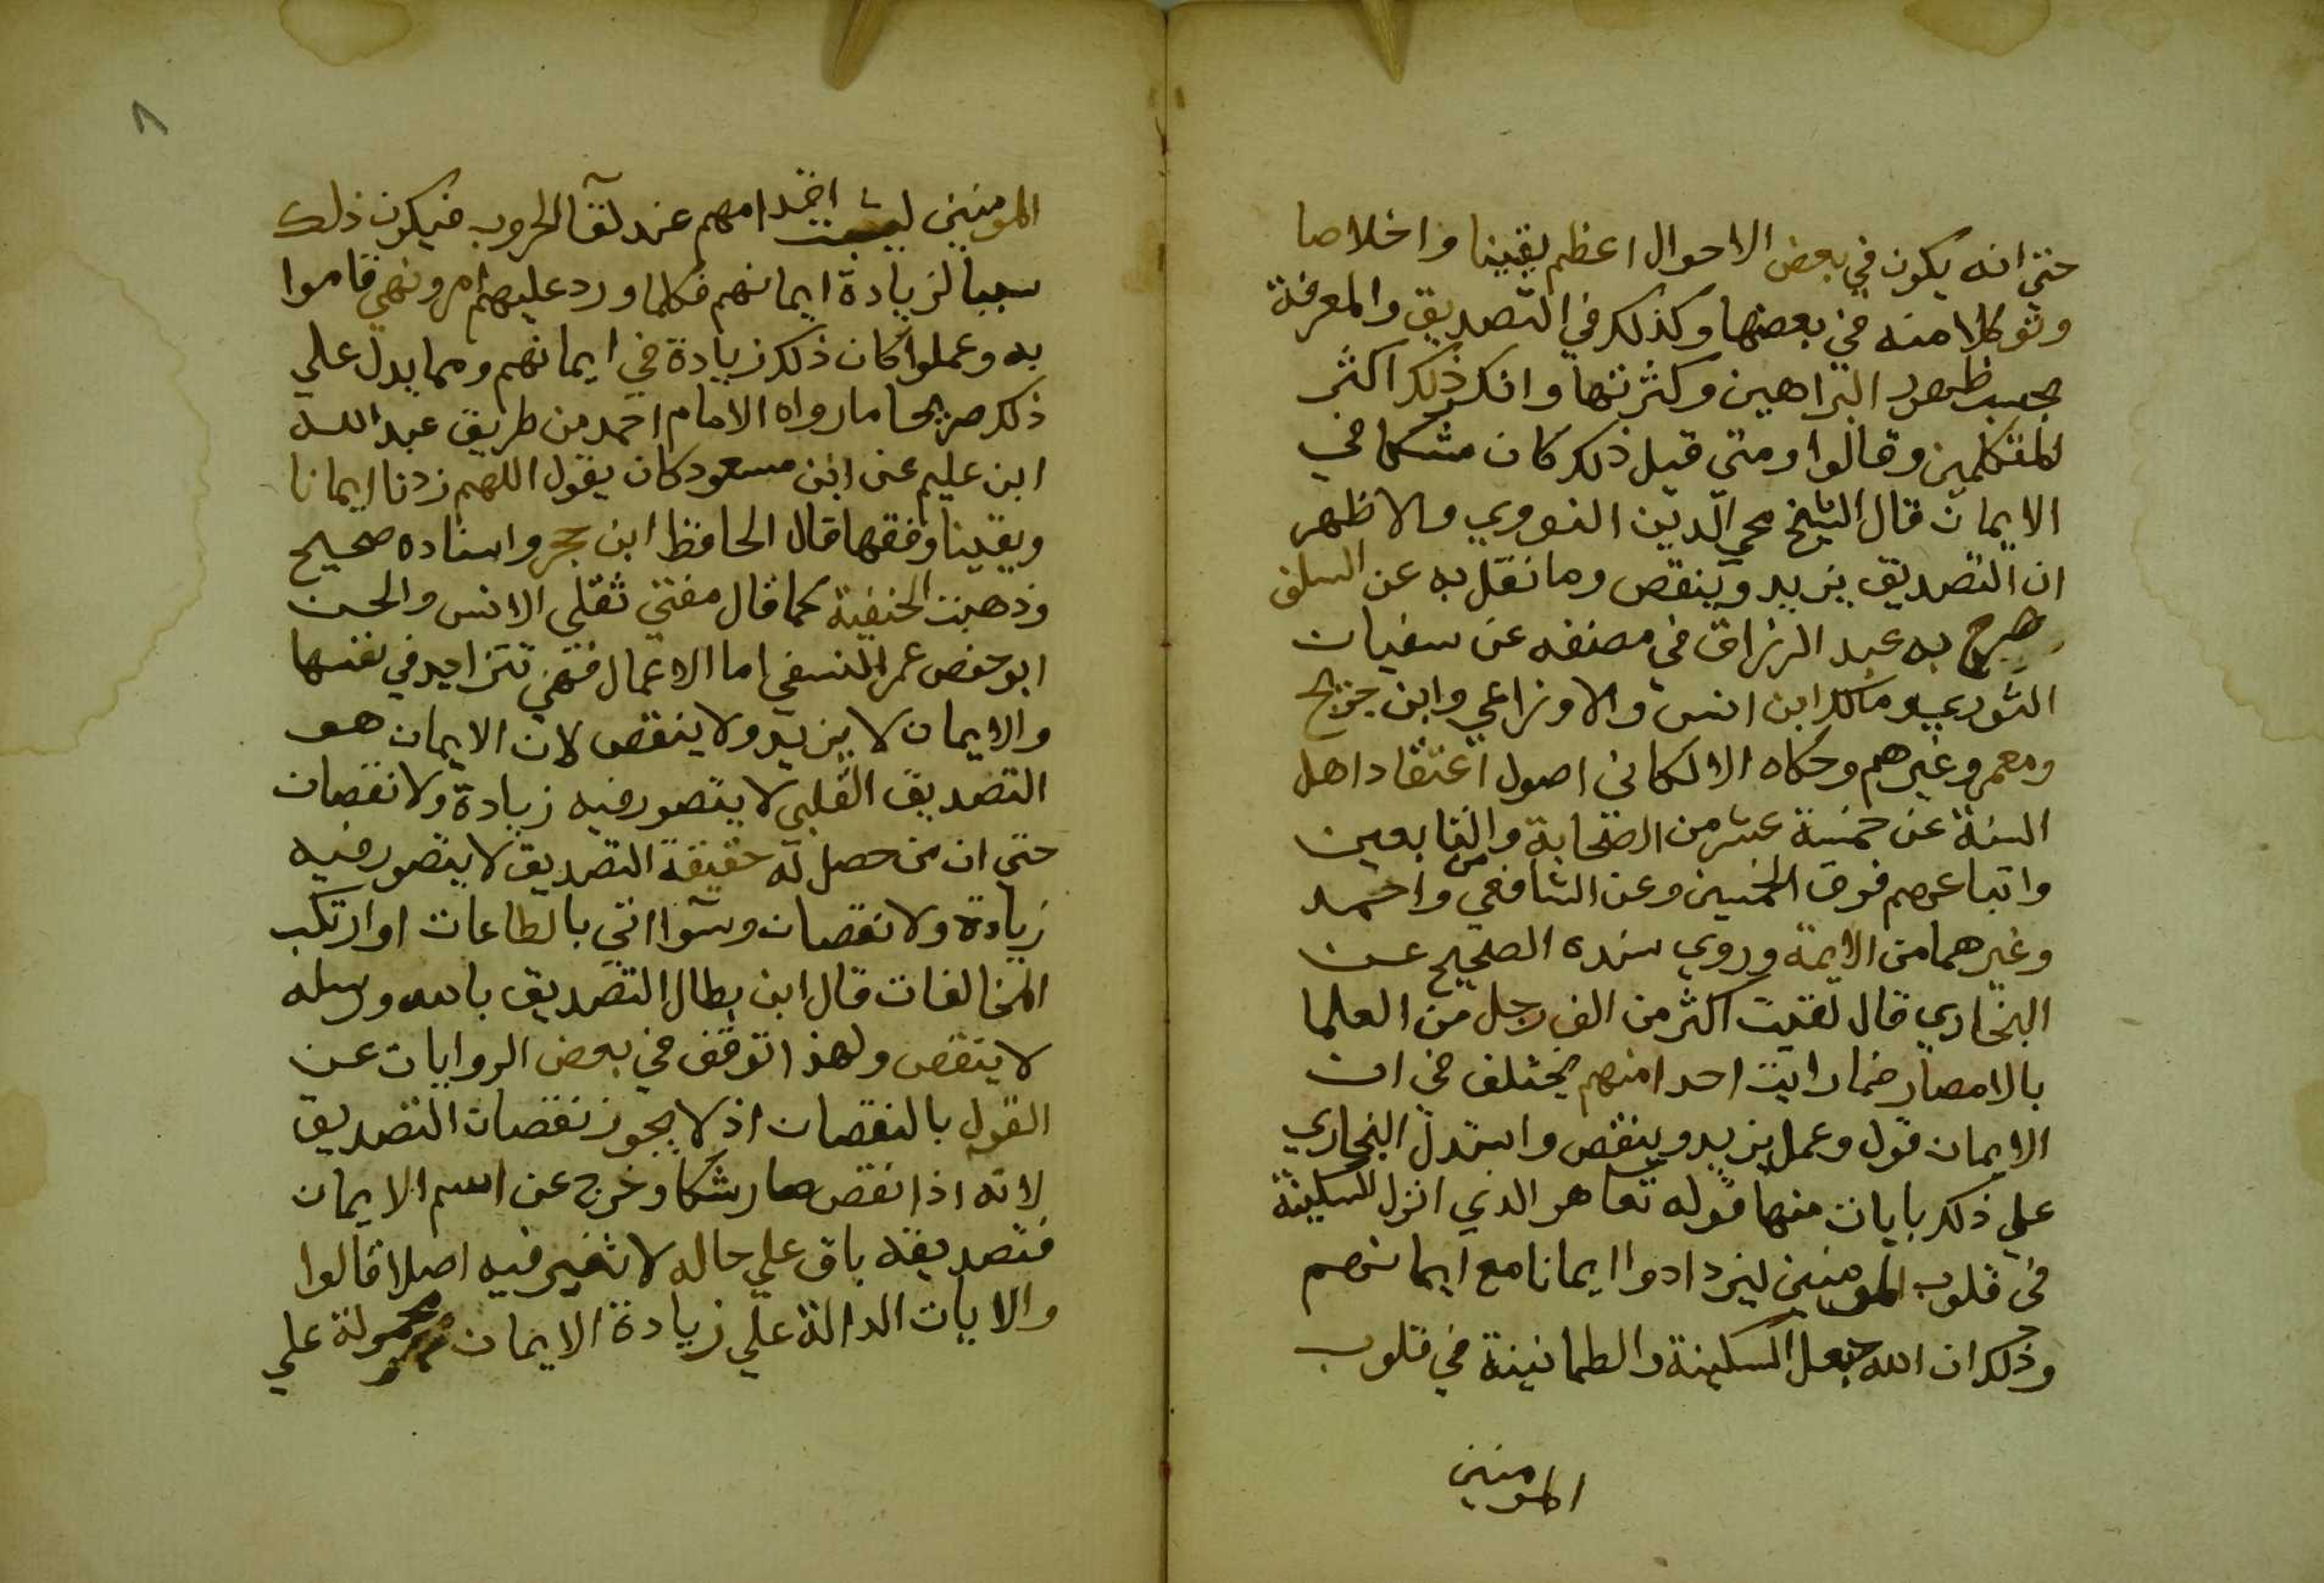 حتي انه يكون في بعض الاحوال اعظم يقينا واخلاصا
وتوكلا منه في بعضها وكذلك في التصديق والمعرفة
بحسب ظهور البراهين وكثرتها وانكر ذلك اكثر
المتكلمين وقالوا ومتي قيل ذلك كان مشكا في
الايمان قال الشيخ محي الدين النووي والاظهر
ان التصديق يزيد وينقص وما نقل به عن السلف
صرح به عبد الرزاق في مصنفه عن سفيان
الثوري ومالك ابن انس والاوزاعي وابن جريج
ومعمر وغيرهم وحكاه الالكاني اصول اعتقاد اهل
السنة عن خمسة عشر من الصحابة والتابعين
واتباعهم فوق الخمسين وعن الشافعي واحمد
وغيرهما من الايمة وروي سنده الصحيح عن
البخاري قال لقيت اكثر من الف رجل من العلما
بالامصار فما رايت احدا منهم يختلف في ان
الايمان قول وعمل يزيد وينقص واستدل البخاري
علي ذلك بايات منها قوله تعا هو الذي انزل السكينة
في قلوب المومنين ليزدادوا ايمانا مع ايمانهم
وذلك ان الله جعل السكينة والطمانينة في قلوب
المومنين
٨
المومنين ليثبت اقدامهم عند لقآ الحروب فيكون ذلك
سببا لزيادة ايمانهم فكلما ورد عليهم امر ونهي قاموا
به وعملوا كان ذلك زيادة في ايمانهم ومما يدل علي
ذلك صريحا ما رواه الامام احمد من طريق عبد الله
ابن عليم عن ابن مسعود كان يقول اللهم زدنا ايمانا
ويقينا وفقها قال الحافظ ابن حجر واسناده صحيح
وذهبت الحنفية كما قال مفتي ثقلي الانس والجن
ابو حفص عمر النسفي اما الاعمال فهي تتزايد في نفسها
والايمان لا يزيد ولا ينقص لان الايمان هو
التصديق القلبي لا يتصور فيه زيادة ولا نقصان
حتي ان من حصل له حقيقة التصديق لا يتصور فيه
زيادة ولا نقصان وسوآ اتي بالطاعات او ارتكب
المخالفات قال ابن بطال التصديق بالله ورسله
لا ينقص ولهذا توقف في بعض الروايات عن
القول بالنقصان اذ لا يجوز نقصان التصديق
لانه اذا نقص صار شكا وخرج عن اسم الايمان
فتصديقه باق علي حاله لا تغير فيه اصلا قالوا
والايات الدالة علي زيادة الايمان محمولة علي